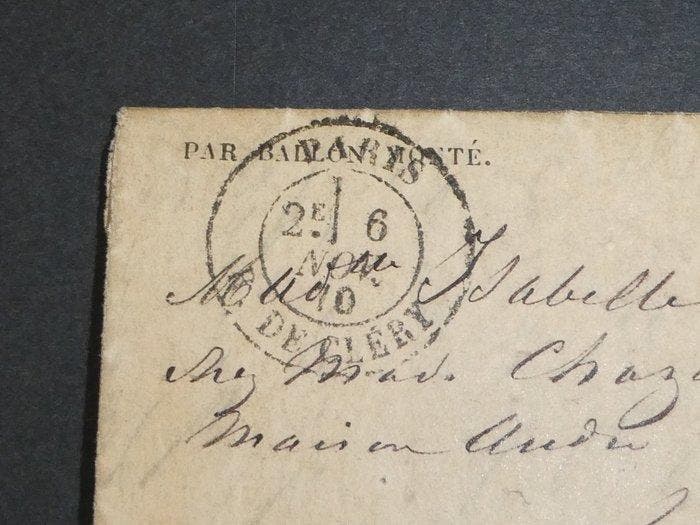 PAR BALLON MONTÉ.
PARIS
2E 6
NOV.
70
R. DE CLÉRY
Madme Isabelle
chez Made. Chaza
Maison André